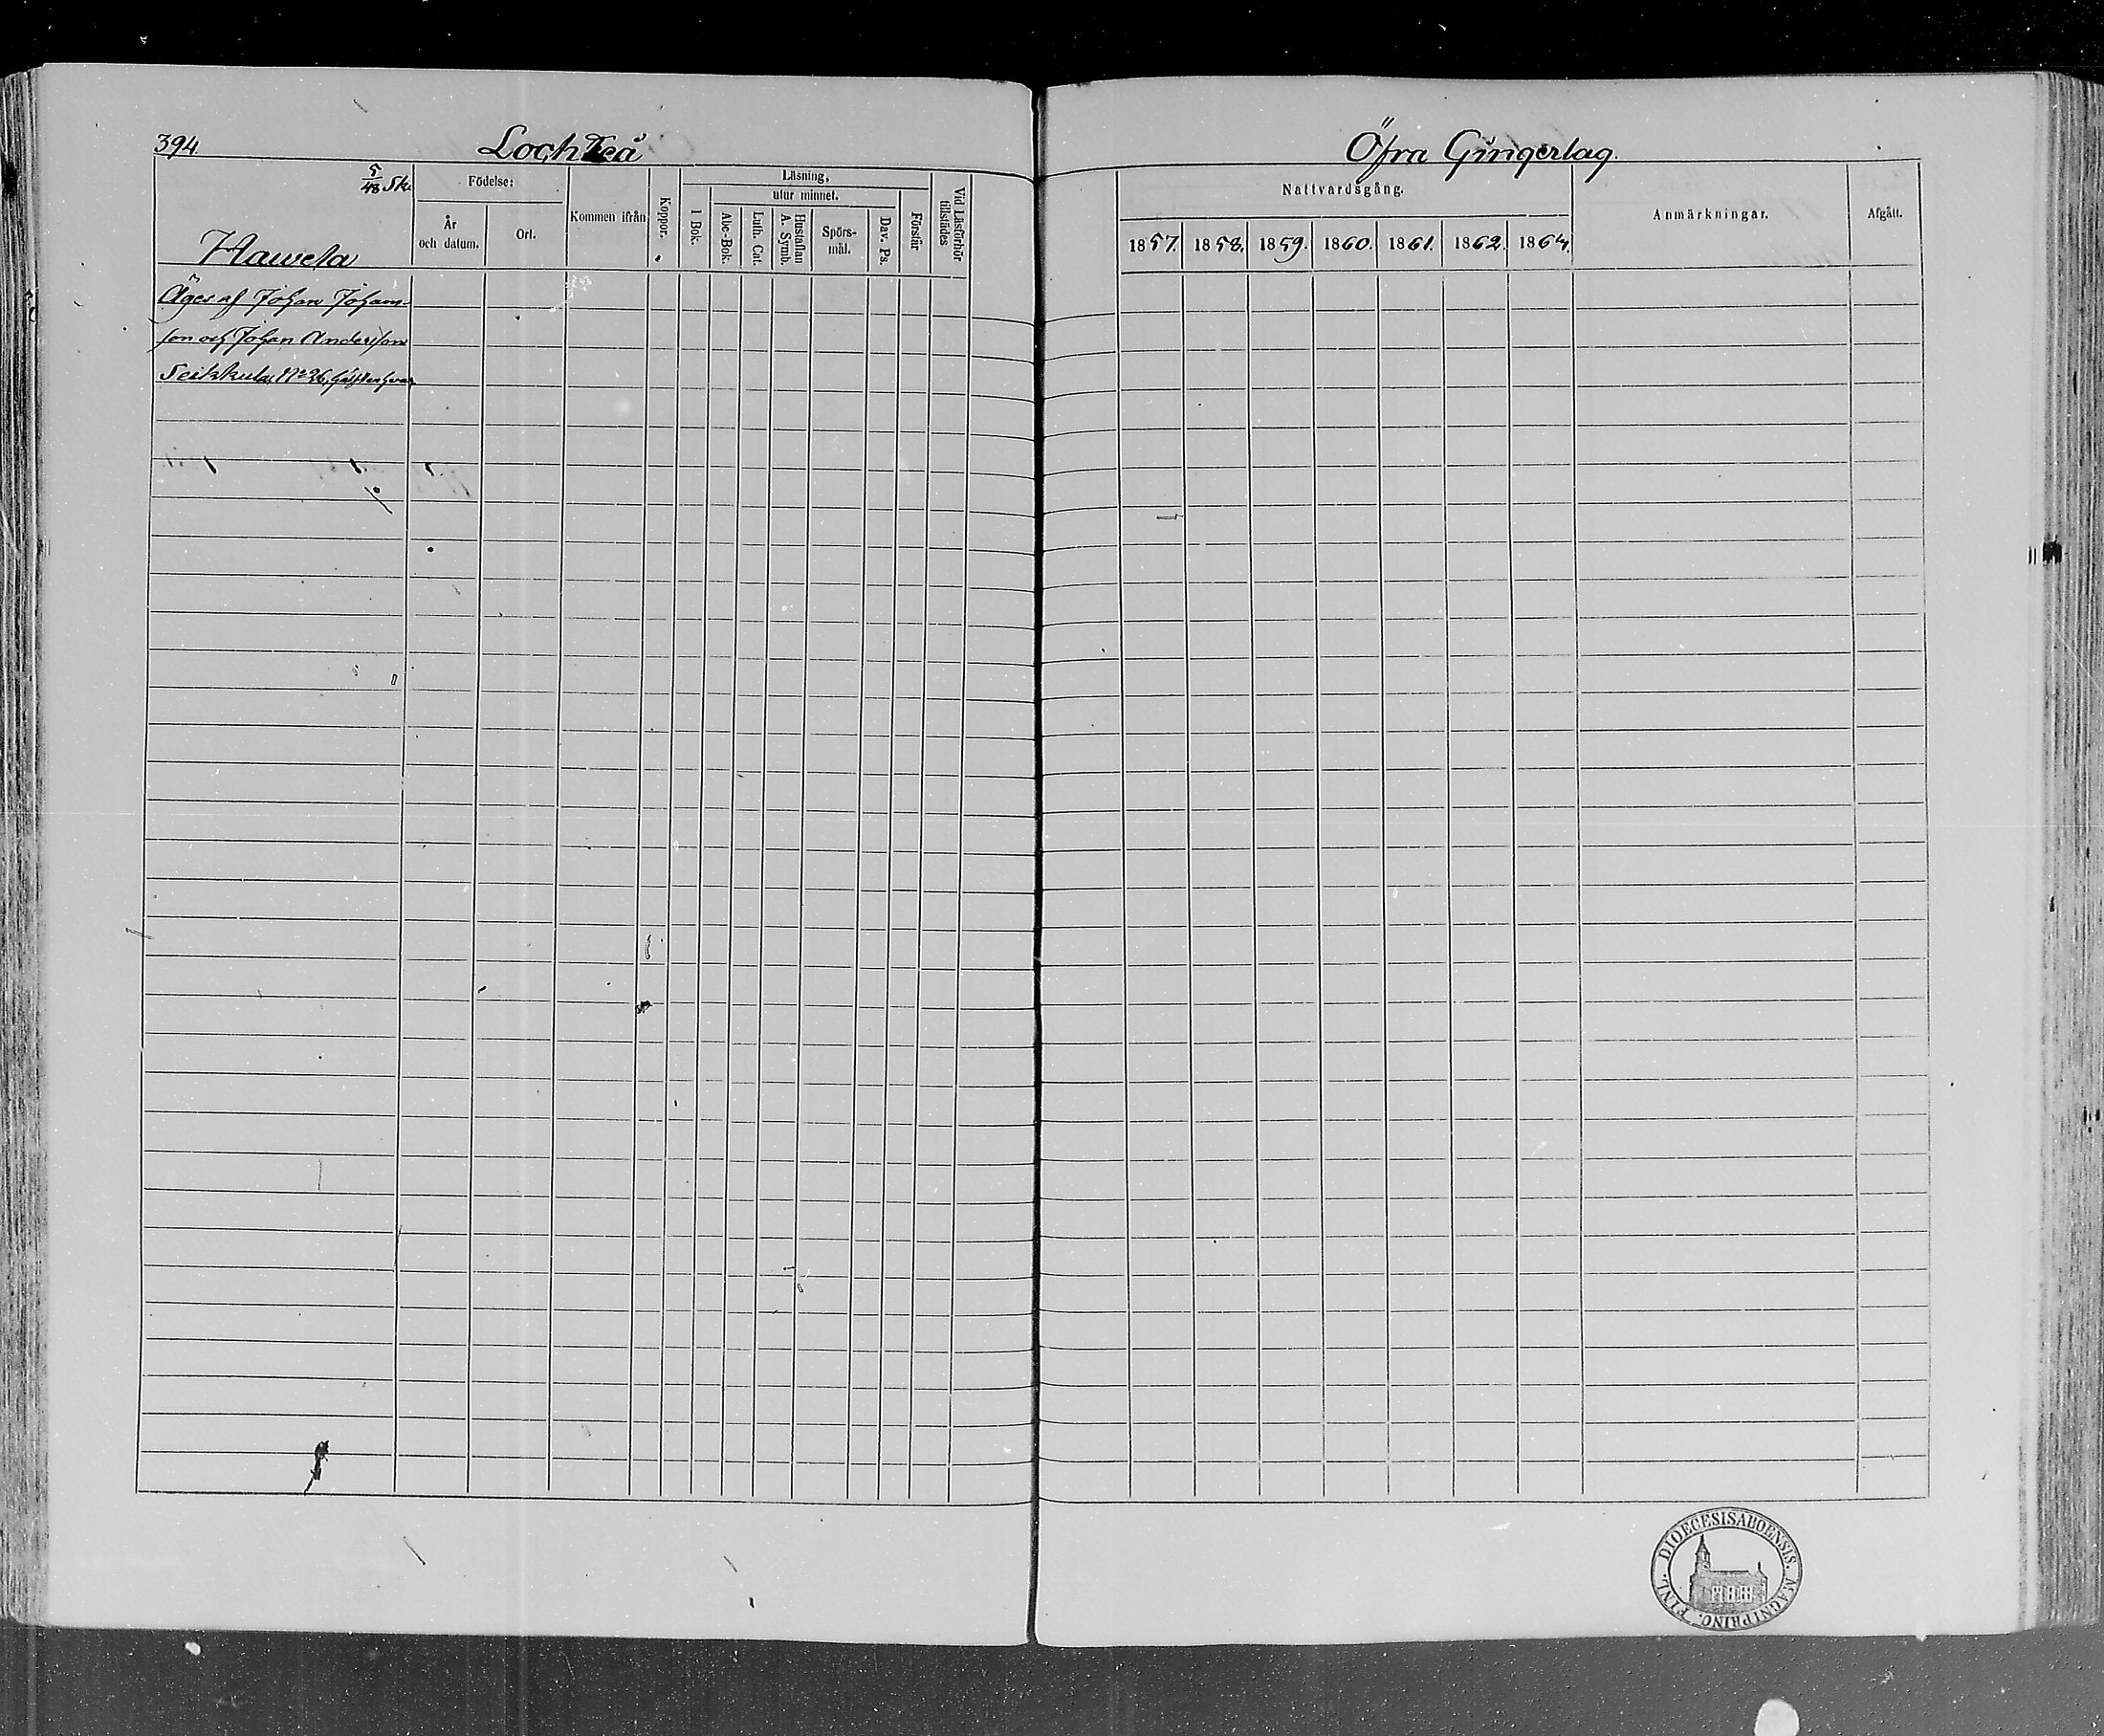 394.
Lochteå
Öfra Gingerlag.
5/48 Sk.
Hawela
Födelse:
År och datum.
Ort.
Kommen ifrån
Koppor.
Läsning,
utur minnet.
1 Bok.
Abc-Bok.
Luth. Cat.
Hustaflan A. Symb.
Spörs-mål.
Dav. Ps.
Förstår
Vid Läsförhör tillstädes
Nattvardsgång.
1857. 1858. 1859. 1860. 1861. 1862. 1864.
Anmärkningar.
Afgått.
Äges af Johan Johans-
son och Johan Andersson
Seikkula, No 26, hälften hvar
DIOECESIS ABOENSIS. MAGNI PRINC. FINL.